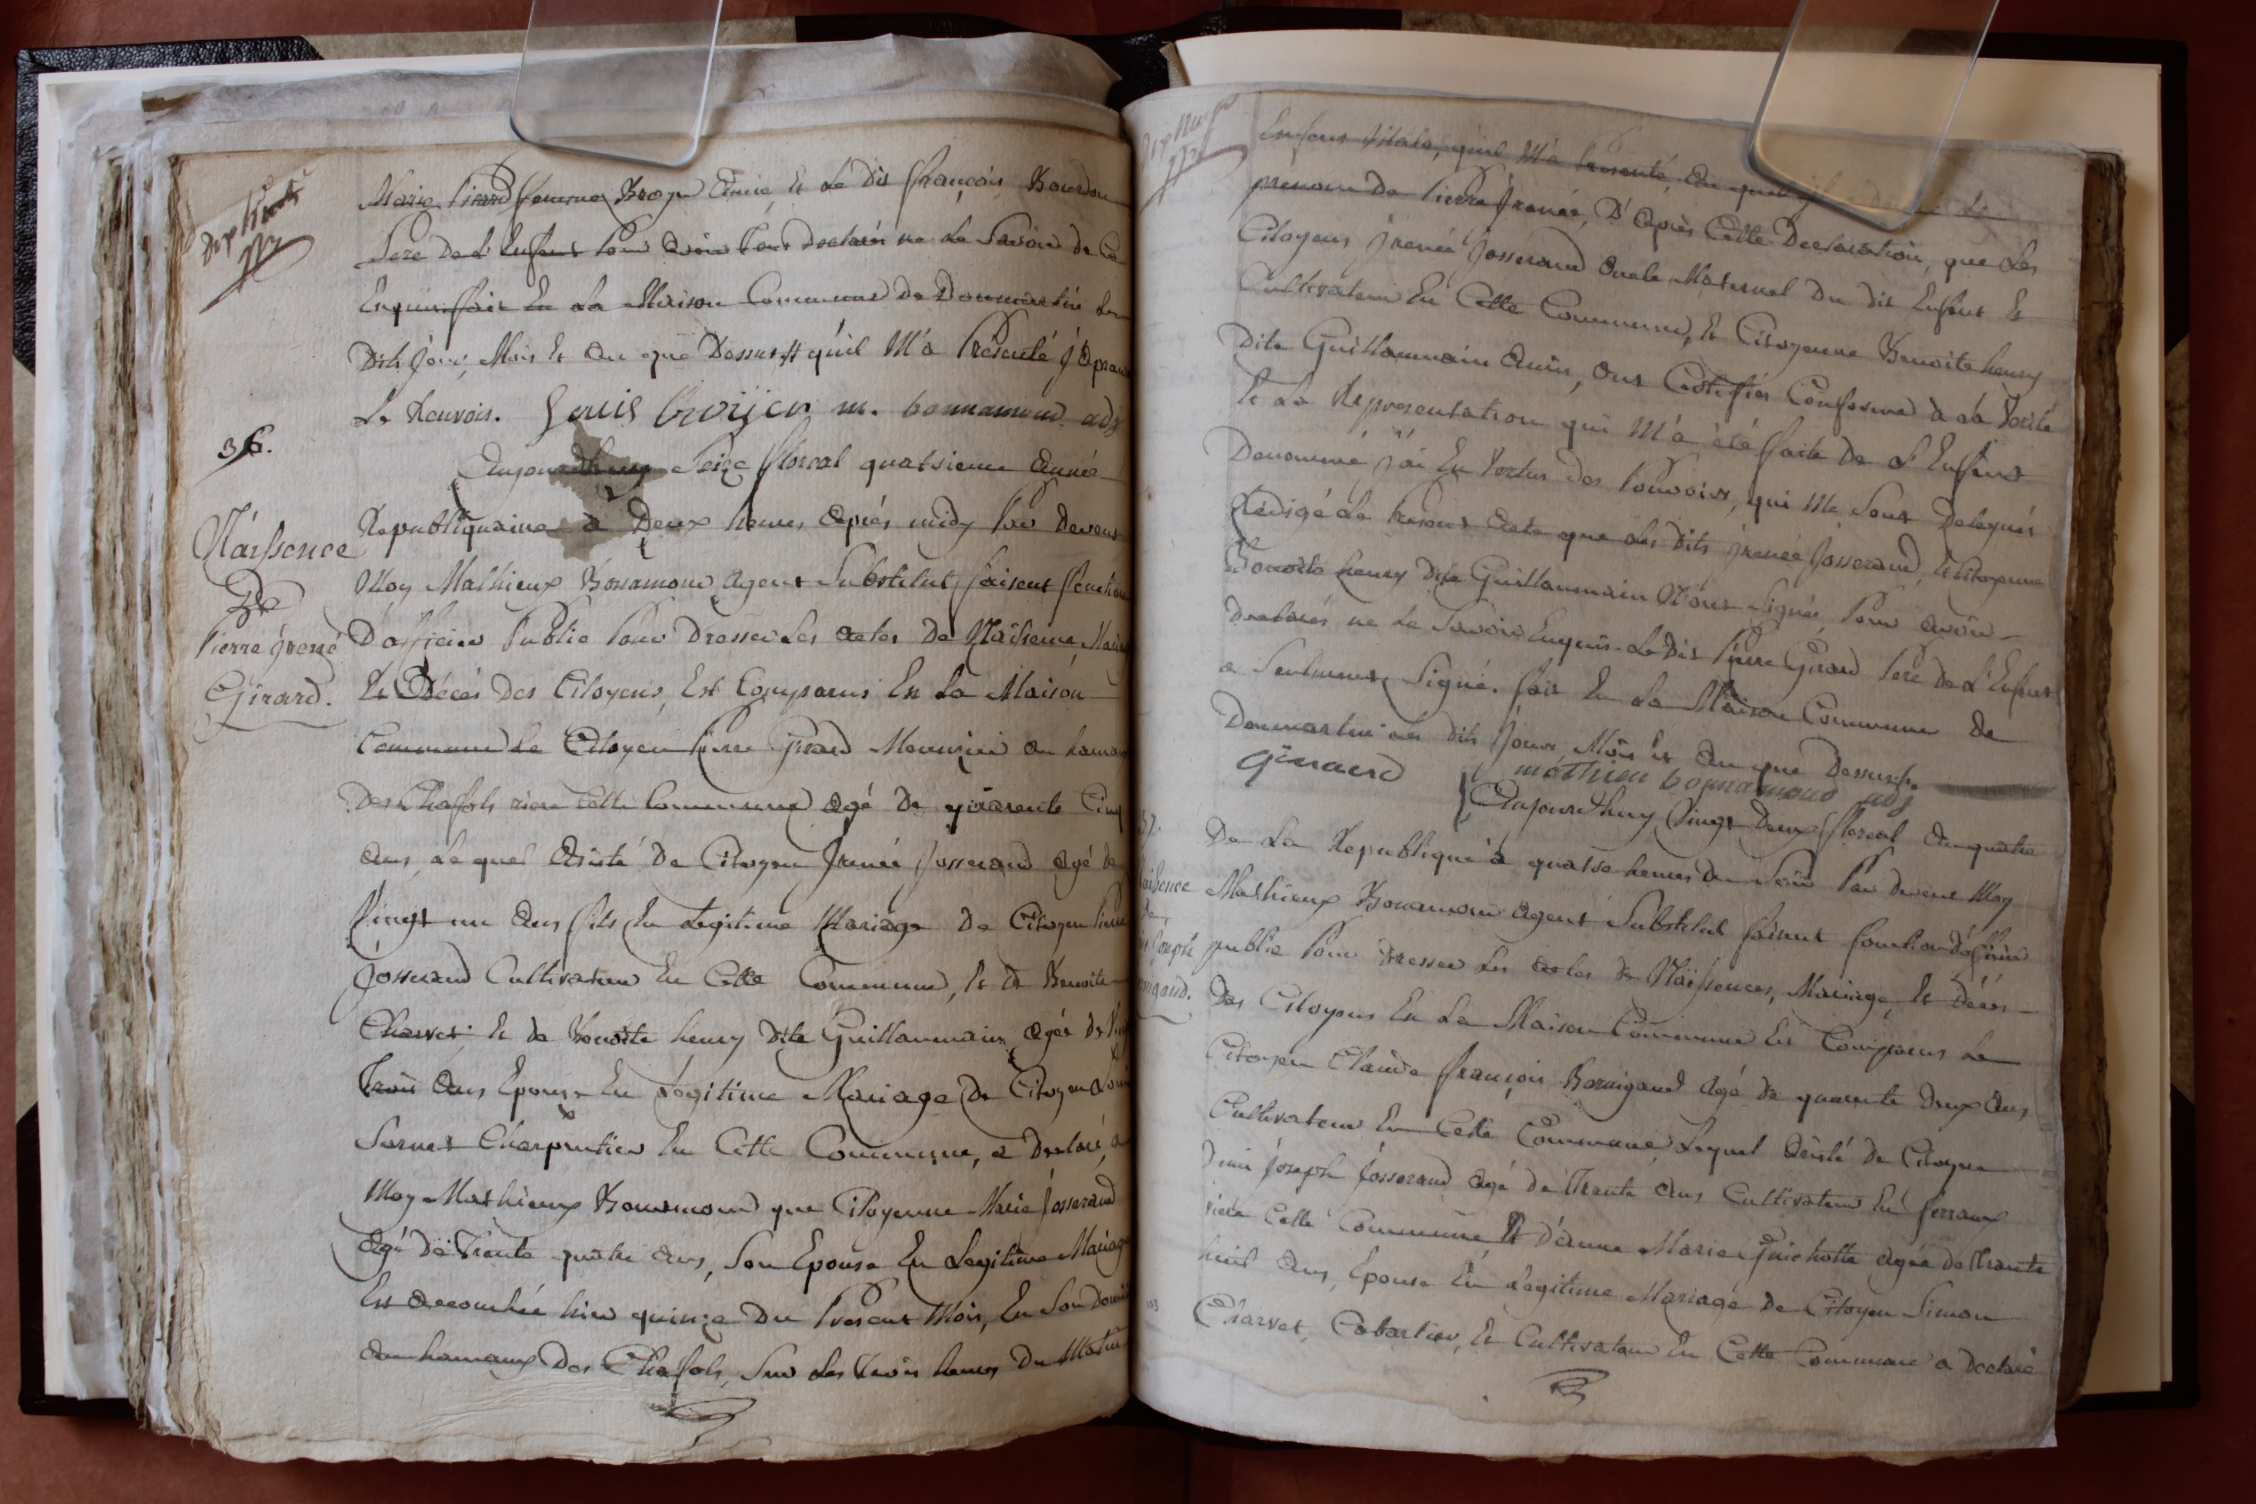 Marie Pirard femme Broÿe Amie, Et Le Dit françois Bourdon
Pere de L'Enfant Pour avoir tous declarés ne Le Savoir de Ce
Enquis fait En La Maison Commune de Dommartin Les
Dits Jour, Mois Et An que Dessus qu'il M'a Presenté
Le Renvois. Louis m. bonnamour adj
36.
Aujourdhuy Seize floreal quatrieme Année
Republiquaine a Deux heures Après midy Par Devant
Naissence
De
Pierre jrenné
Girard.
Moy Mathieux Bonamour Agent Substitut faisent fonction
D'officier Public Pour Dresser Les Actes De Naissence, Maria
Et Décés Des Citoyens, Est Comparus En La Maison
Commune Le Citoyen Pierre Girard Meunier Au hamau
Des Chasols riere Cette Commune agé De quarente Cinq
Ans, Le quel Assisté De Citoyen Jrenée Josserand Agé de
Vingt un Ans fils En Legitime Mariage De Citoyen Pierre
Josserand Cultivateur En Cette Commune, Et De Benoite
Charvet, Et de Benoite henry Dite Guillaumain, agée De
Trois Ans Epouse En Legitime Mariage De Citoyen
Sarnet Charpentier En Cette Commune, a Declaré, a
Moy Mathieux Bonamour que Citoyenne Marie Josserand
Agé De Trente quatre Ans, Son Epouse En Legitime Mariage
Est Accouchée hier quinze Du Present Mois, En Son Domi
Au hamaux Des Chasols, Sur Les Trois heures Du Matin
Enfant Mala, qu'il M'a Presenté Au quel
prenom De Pierre Jrenée, D'après Cette Declaration, que Les
Citoyens jrenée Josserand oncle Maternel Du dit Enfant Et
Cultivateur En Cette Commune, Et Citoyenne Benoite henry
Dite Guillaumain Amis, ont Certifiés Conforme a La Verité
Et La Representation qui M'a été faite De L'Enfant
Denommé j'ai En Vertus Des Pouvoirs, qui Me Sont Delegués
Redigé Le Present Acte que Les Dits jrenée Josserand, Et Citoyenne
Benoite henry Dite Guillaumain N'ont Signés, Pour avoir
Declarés ne Le Savoir Enquis. Le Dit Pierre Girard Pere De L'Enfant
a Seulement Signé. fait En La Maison Commune De
Dommartin Les Dits Jour Mois Et An que Dessus.
Girard mathieu bonnamour adj
Aujourdhuy Vingt Deux floreal An quatre
De La Republique a quatre heures Du Soir Par Devent Moy
Mathieux Bonamour Agent Substitut faisent fonction d'officier
public Pour Dresser Les Actes De Naissences, Mariage, Et Décés
Des Citoyens En La Maison Commune Est Comparus Le
Citoyen Claude françois Bornigaud Agé De quarente Deux Ans
Cultivateur En Cette Commune, Lequel Assisté De Citoyen
Denis Joseph Josserand Agé De Trente Ans Cultivateur En
riere Cette Commune Et D'Anne Marie Guichotte Agée De Trente
huit Ans, Epouse En Legitime Mariage De Citoyen Simon
Charvet, Cabartier, Et Cultivateur En Cette Commune a Declaré